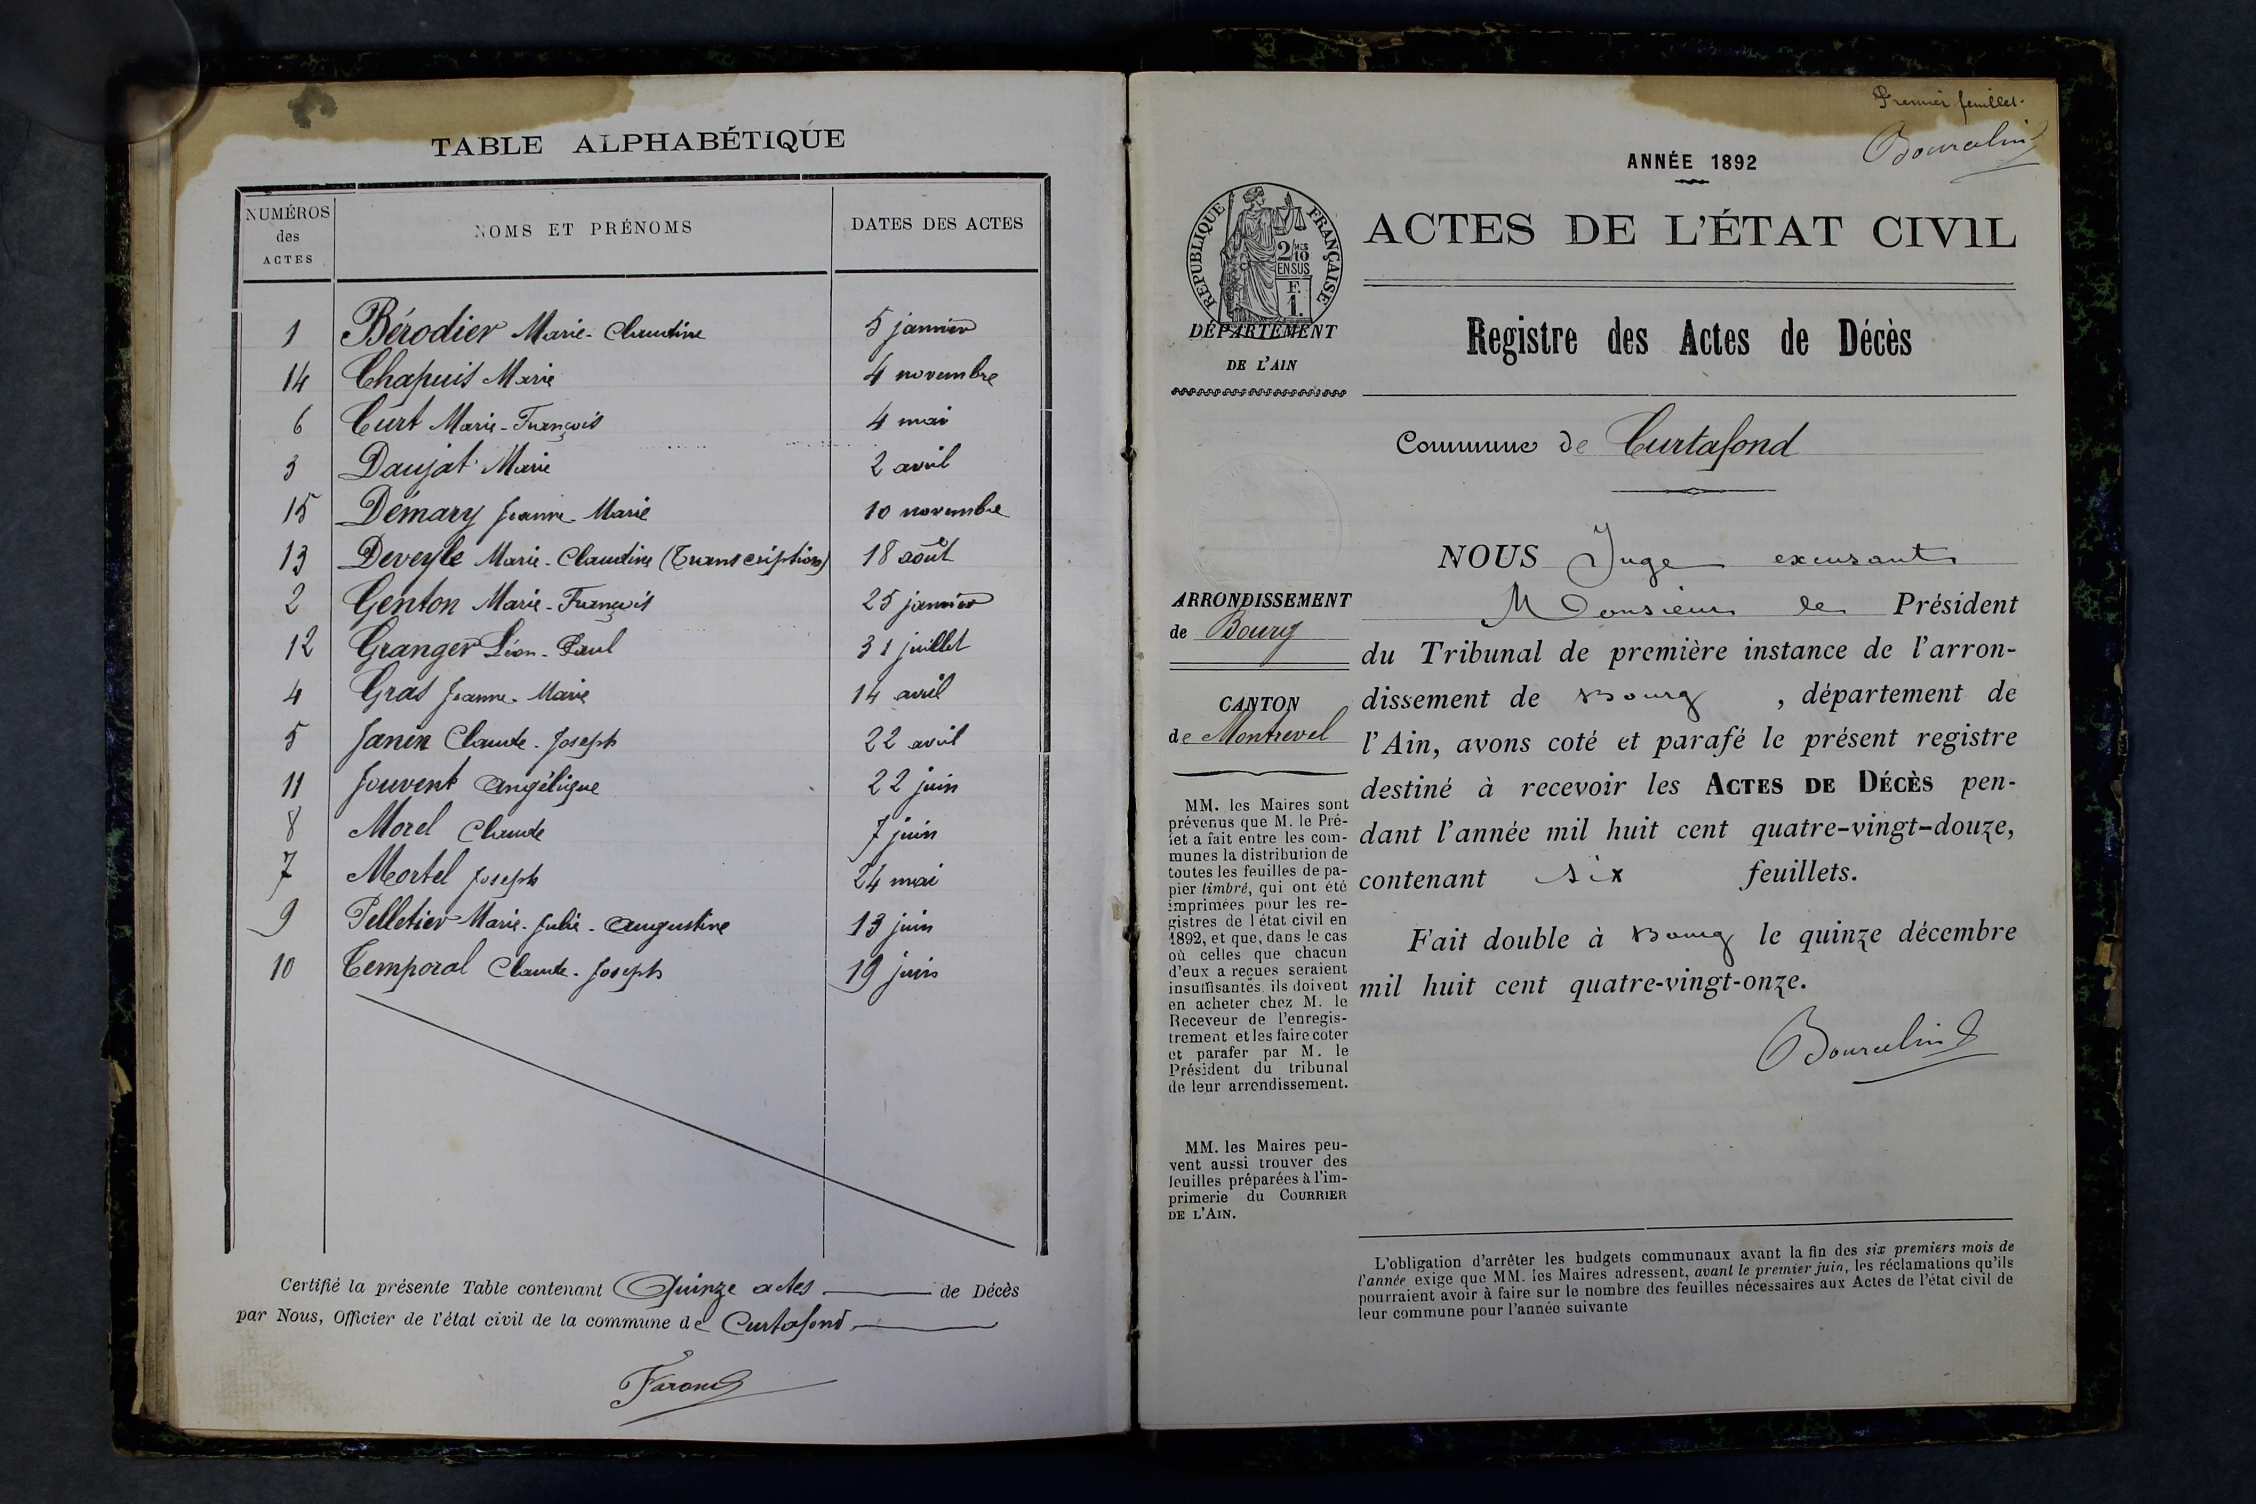 TABLE ALPHABÉTIQUE
NUMÉROS des ACTES NOMS ET PRÉNOMS DATES DES ACTES
1 Bérodier Marie-Claudine 5 janvier
14 Chapuis Marie 4 novembre
6 Curt Marie-François 4 mai
3 Daujat Marie 2 avril
15 Démary Jeanne-Marie 10 novembre
13 Deveyle Marie-Claudine (Transcription) 18 août
2 Genton Marie-François 25 janvier
12 Granger Léon-Paul 31 juillet
4 Gras Jeanne-Marie 14 avril
5 Janin Claude-Joseph 22 avril
11 Jouvent Angélique 22 juin
8 Morel Claude 7 juin
7 Mortel Joseph 24 mai
9 Pelletier Marie-Julie-Augustine 13 juin
10 Temporal Claude-Joseph 19 juin
Certifié la présente Table contenant Quinze actes de Décès
par Nous, Officier de l'état civil de la commune de Curtafond
Premier feuillet.
Bourcelin
ANNÉE 1892
RÉPUBLIQUE FRANÇAISE
2/10
EN SUS
F.
1.
DÉPARTEMENT
DE L'AIN
ACTES DE L'ÉTAT CIVIL
Registre des Actes de Décès
Commune de Curtafond
ARRONDISSEMENT
de Bourg
CANTON
de Montrevel
MM. les Maires sont
prévenus que M. le Pré-
fet a fait entre les com-
munes la distribution de
toutes les feuilles de pa-
pier timbré, qui ont été
imprimées pour les re-
gistres de l'état civil en
1892, et que, dans le cas
où celles que chacun
d'eux a reçues seraient
insuffisantes, ils doivent
en acheter chez M. le
Receveur de l'enregis-
trement et les faire coter
et parafer par M. le
Président du tribunal
de leur arrondissement.
MM. les Maires peu-
vent aussi trouver des
feuilles préparées à l'im-
primerie du COURRIER
DE L'AIN.
NOUS Juge excusant
Monsieur le Président
du Tribunal de première instance de l'arron-
dissement de Bourg, département de
l'Ain, avons coté et parafé le présent registre
destiné à recevoir les ACTES DE DÉCÈS pen-
dant l'année mil huit cent quatre-vingt-douze,
contenant six feuillets.
Fait double à Bourg le quinze décembre
mil huit cent quatre-vingt-onze.
Bourcelin
L'obligation d'arrêter les budgets communaux avant la fin des six premiers mois de
l'année exige que MM. les Maires adressent, avant le premier juin, les réclamations qu'ils
pourraient avoir à faire sur le nombre des feuilles nécessaires aux Actes de l'état civil de
leur commune pour l'année suivante